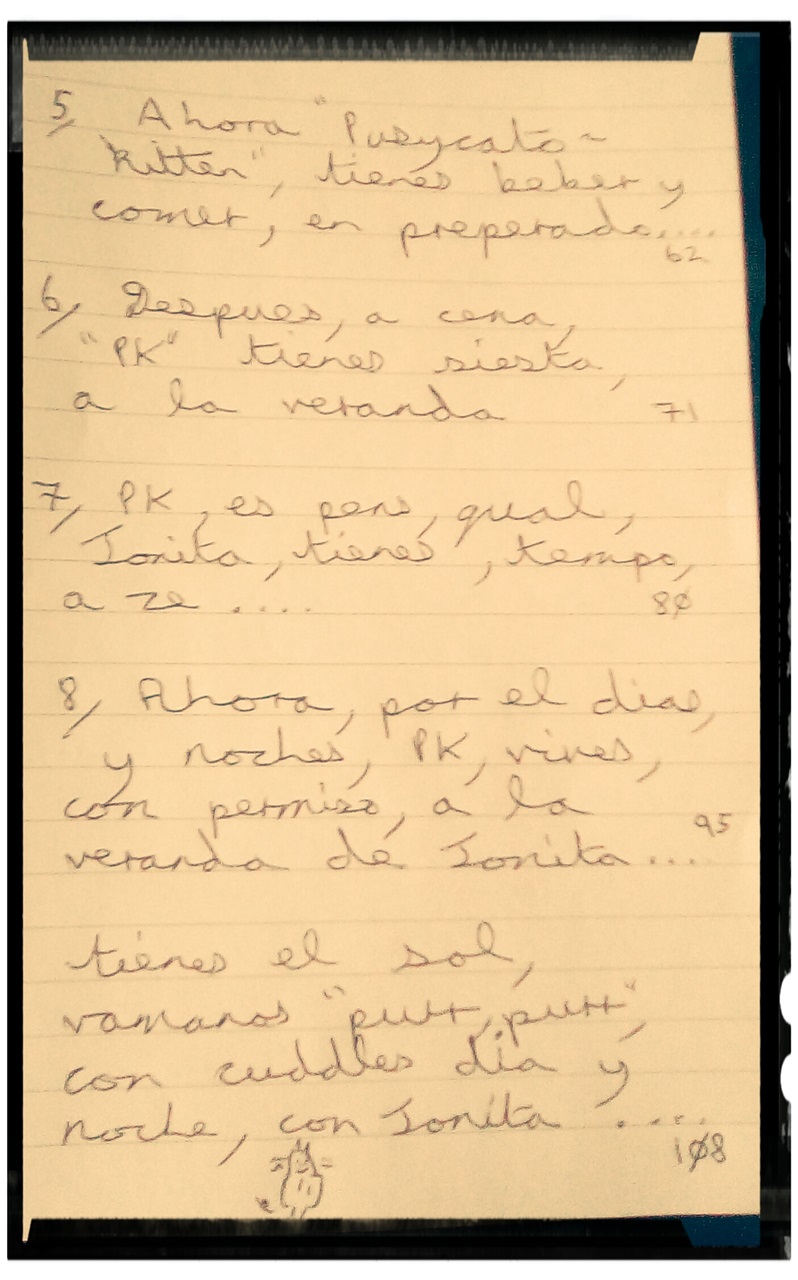 5, Ahora "Pusycato-
Kitten", tienes beber y
comer, en preperado....
62
6, Despues, a cena,
"PK" tienes siesta,
a la veranda 71
7, PK, es pens, qual,
Jonita, tienes, tempo,
a ze .... 80
8, Ahora, por el dias,
y noches, PK, vives,
con permiso, a la
95
veranda de Jonita ...
tienes el sol,
vamanos "purr, purr",
con cuddles dia y
noche, con Jonita ....
108